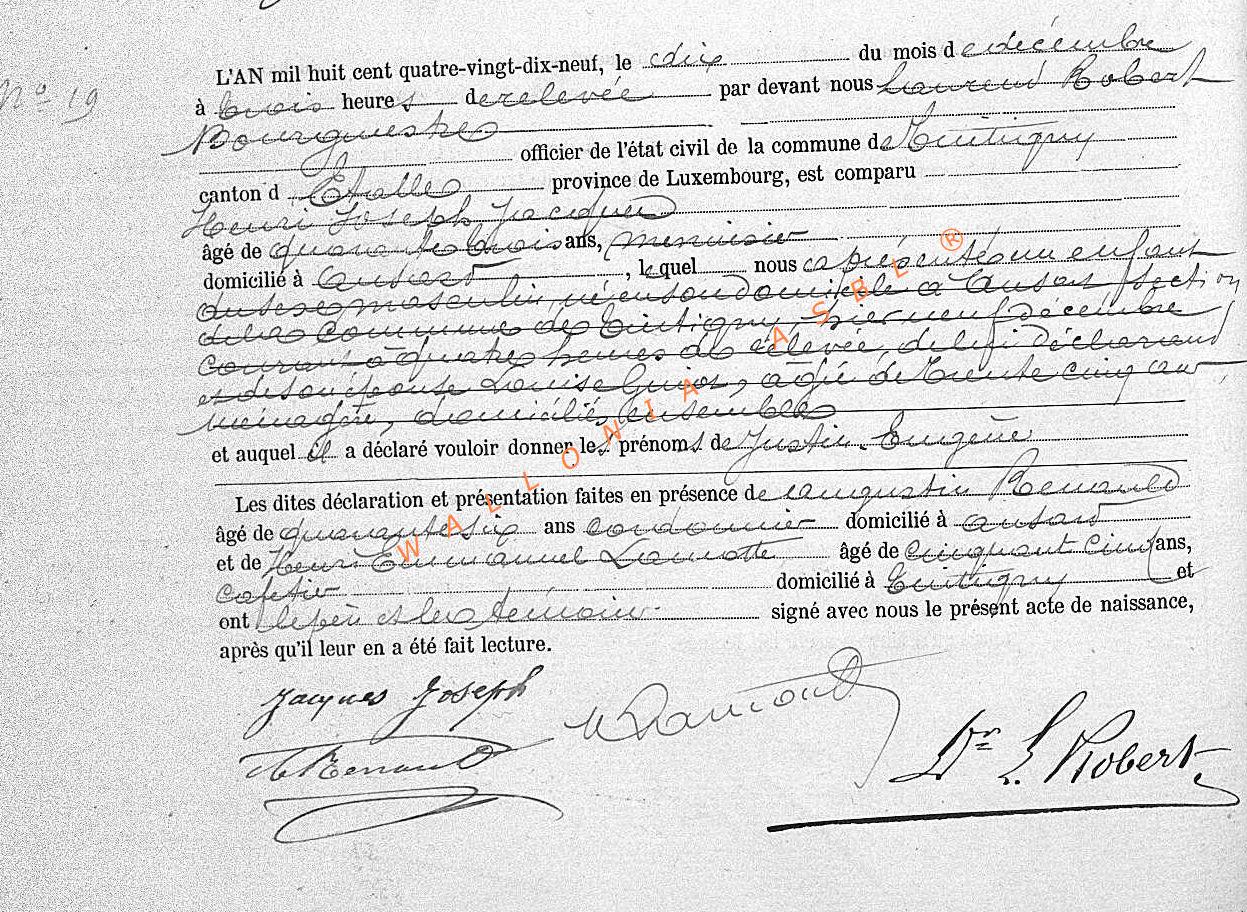 L'AN mil huit cent quatre-vingt-dix-neuf, le dix du mois de décembre
N° 19
à trois heures de relevée par devant nous Laurent Robert
Bourgmestre
officier de l'état civil de la commune de Tintigny
canton d'Etalle province de Luxembourg, est comparu
Henri Joseph Jacques
âgé de quarante trois ans, menuisier
domicilié à Ansart, lequel nous a présenté un enfant
du sexe masculin, né en son domicile à Ansart section
de la commune de Tintigny, hier neuf décembre
courant à quatre heures de relevée, de lui déclarant
et de son épouse Louise, âgée de trente cinq ans,
ménagère, domiciliés ensemble
et auquel il a déclaré vouloir donner les prénoms de Justin Eugène
Les dites déclaration et présentation faites en présence de Augustin Renauld
âgé de quarante six ans cordonnier domicilié à Ansart
et de Henri Emmanuel Lamotte âgé de cinquante cinq ans,
cafetier domicilié à Tintigny et
ont le père et les témoins signé avec nous le présent acte de naissance,
après qu'il leur en a été fait lecture.
Jacques Joseph
Renauld
Dr L. Robert
WALLONIA ASBL ®